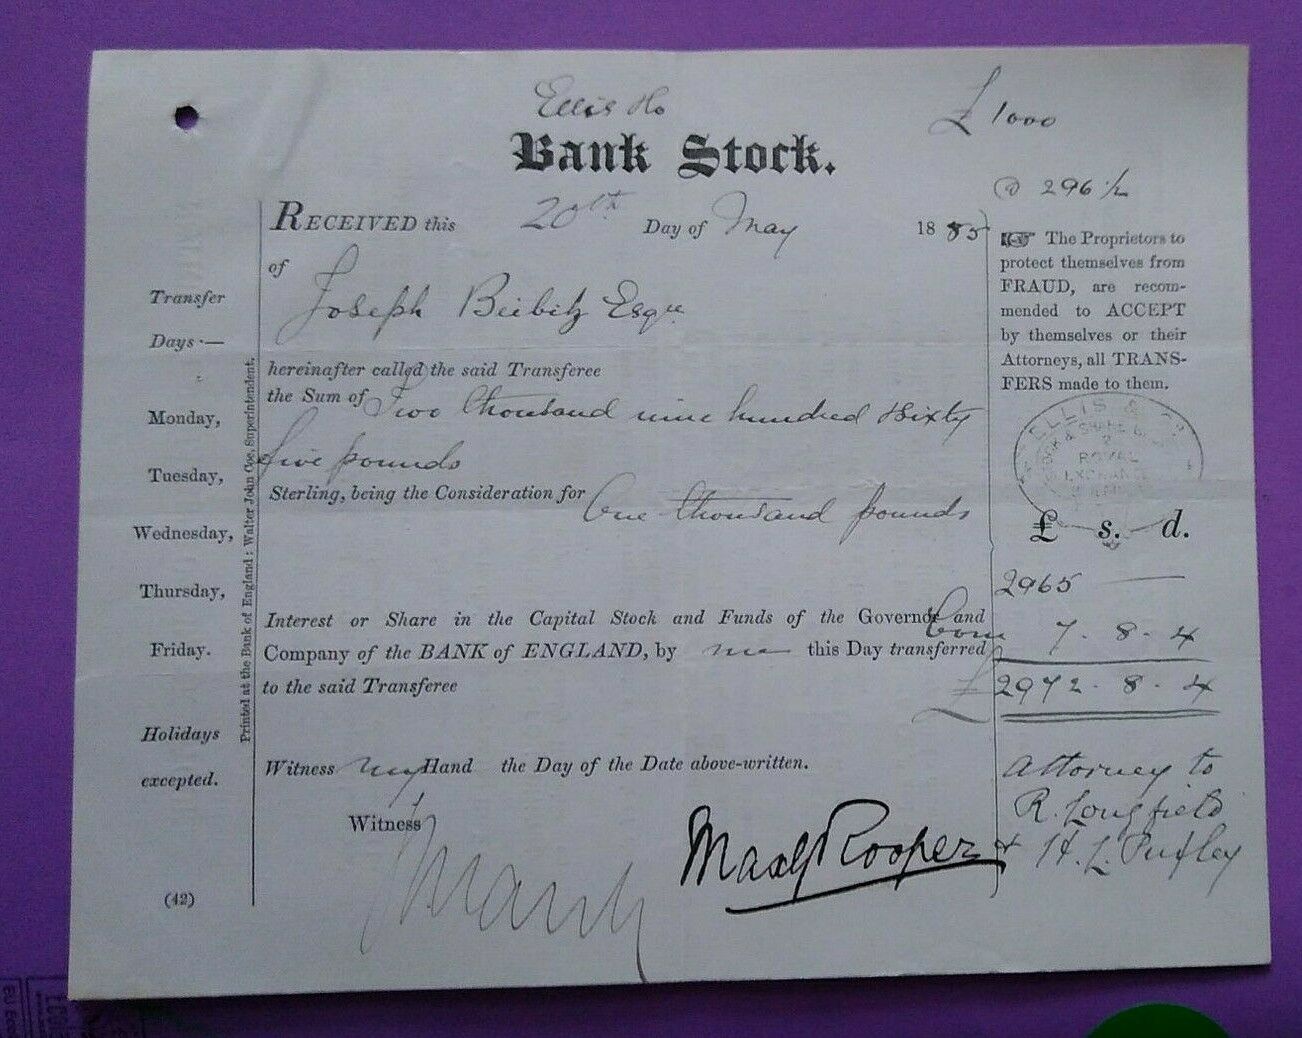 Ellis
£ 1000
Bank Stock.
@ 296 1/2
RECEIVED this 20th Day of May 1885
of
Joseph Beibitz Esqre
hereinafter called the said Transferee
the Sum of Two thousand nine hundred Sixty
five pounds
Sterling, being the Consideration for One thousand pounds
Interest or Share in the Capital Stock and Funds of the Governor and
Company of the BANK of ENGLAND, by me this Day transferred
to the said Transferee
Witness my Hand the Day of the Date above-written.
Witness
Transfer
Days :—
Monday,
Tuesday,
Wednesday,
Thursday,
Friday.
Holidays
excepted.
(42)
Printed at the Bank of England: Walter John Coe, Superintendent.
☞ The Proprietors to
protect themselves from
FRAUD, are recom-
mended to ACCEPT
by themselves or their
Attorneys, all TRANS-
FERS made to them.
ELLIS & Co
ROYAL
EXCHANGE
£ s. d.
2965 —
Com 7 . 8 . 4
£ 2972 . 8 . 4
Rooper
Attorney to
R. Longfield
& H. L. Puxley